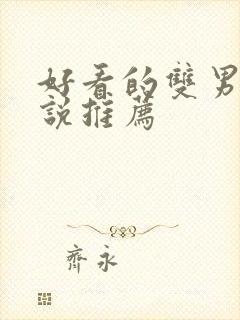 好看的雙男
說推薦
齊永